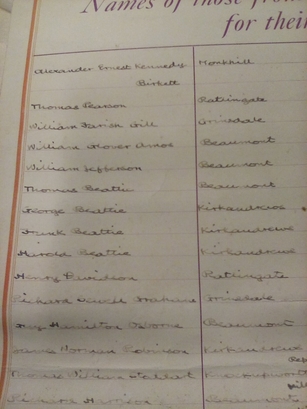 Names of those from
for their
Alexander Ernest Kennedy Monkhill
Birkett
Thomas Pearson Rattingate
William Parish Gill Grinsdale
William Grover Amos Beaumont
William Jefferson Beaumont
Thomas Beattie Beaumont
George Beattie Kirkandrews
Frank Beattie Kirkandrews
Harold Beattie Kirkandrews
Henry Davidson Rattingate
Richard Graham Grinsdale
Hamilton Osborne Beaumont
Norman Robinson Kirkandrews
Thomas William Knockupworth
Richard Harrison Beaumont